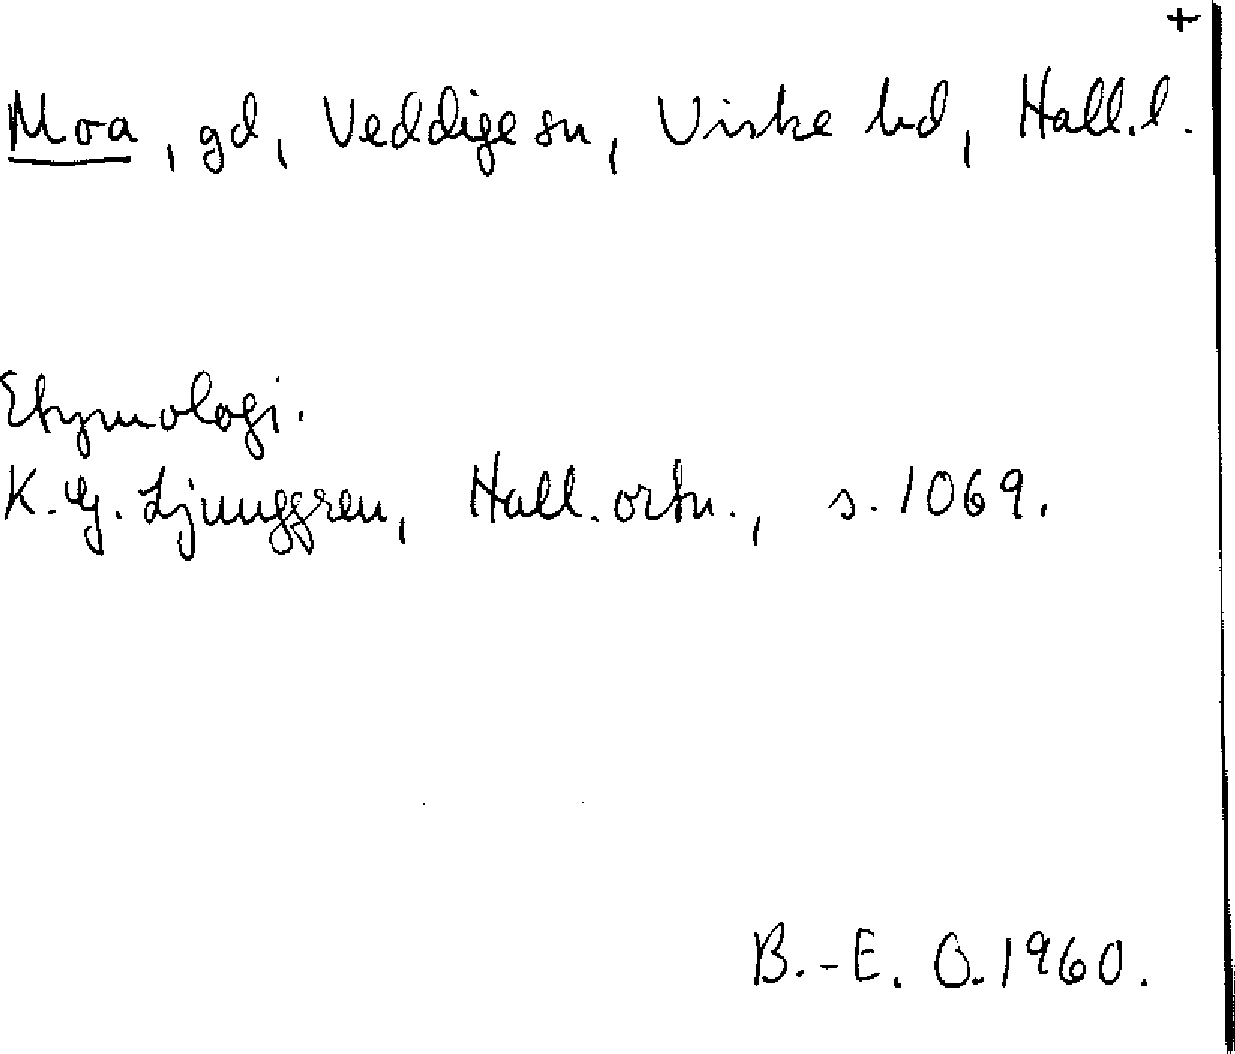 +
Moa, gd, Veddige sn, Viske hd, Hall. l.
Etymologi.
K. G. Ljunggren, Hall. ortn., s. 1069.
B.-E. O. 1960.